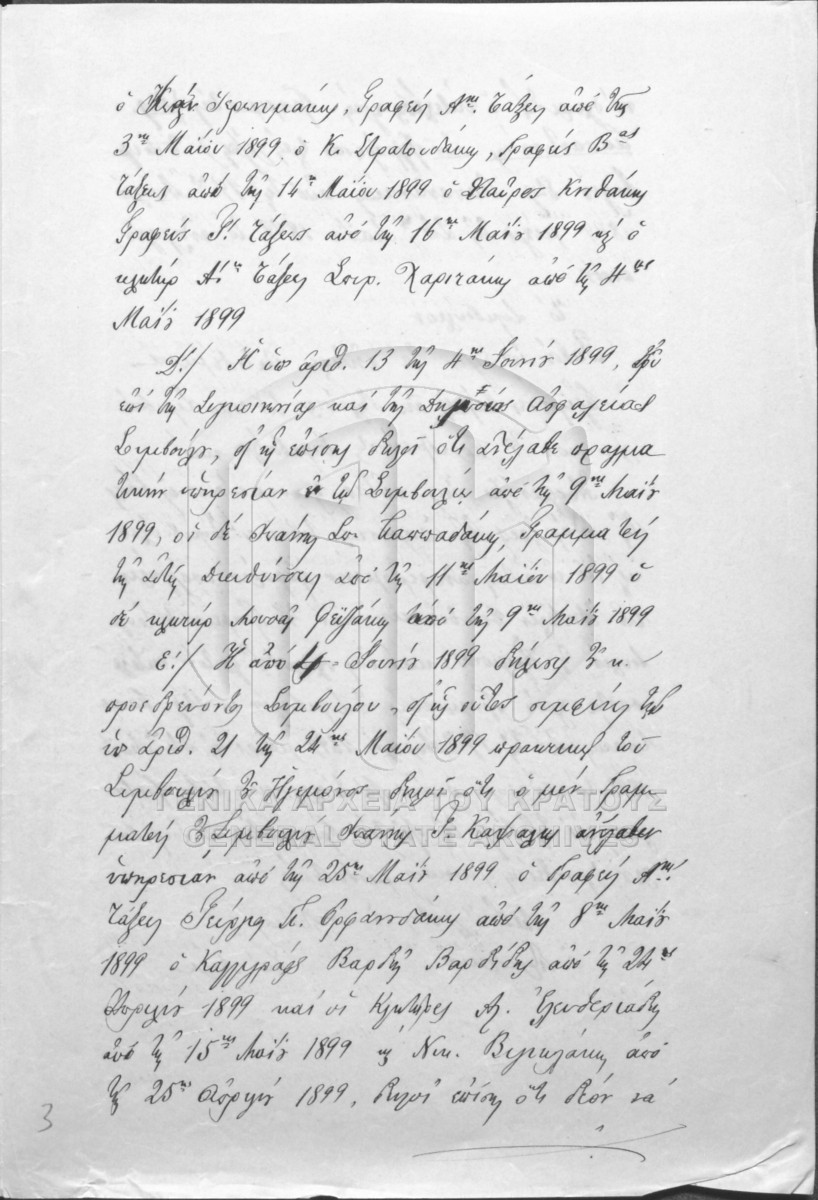 ὁ Ἱερωνυμάκης, Γραφεὺς Α^ης τάξεως ἀπὸ τῆς
3^ης Μαΐου 1899, ὁ Κ. Στρατουδάκης, Γραφεὺς Β^ας
τάξεως ἀπὸ τῆς 14^ης Μαΐου 1899 ὁ Σταῦρος Κνιθάκης
Γραφεὺς Γ'. τάξεως ἀπὸ τῆς 16^ης Μαΐου 1899 καὶ ὁ
κλητὴρ Α' τάξεως Σπυρ. Χαριτάκης ἀπὸ τῆς 4^ης
Μαΐου 1899
Δ'./ Ἡ ὑπ' ἀριθ. 13 τῆς 4^ης Ἰουνίου 1899, τοῦ
ἐπὶ τῆς Συγκοινωνίας καὶ τῆς Δημοσίας Ἀσφαλείας
Συμβούλου, δι' ἧς ἐπίσης δηλοῖ ὅτι ἀνέλαβε πραγμα
τικὴν ὑπηρεσίαν ἐν τῷ Συμβουλίῳ ἀπὸ τῆς 9^ης Μαΐου
1899, οἱ δὲ Ἰωάννης Σπ. Παππαδάκης, Γραμματεὺς
τῆς αὐτῆς Διευθύνσεως ἀπὸ τῆς 11^ης Μαΐου 1899 ὁ
δὲ κλητὴρ Μουσᾶς Φεϊζάκης ἀπὸ τῆς 9^ης Μαΐου 1899
Ε'./ Ἡ ἀπὸ 4 Ἰουνίου 1899 δήλωσις τοῦ κ.
προεδρεύοντος Συμβούλου, δι' ἧς οὗτος συμφώνως τῷ
ὑπ' ἀριθ. 21 τῆς 24^ης Μαΐου 1899 πρακτικῷ τοῦ
Συμβουλίου τοῦ Ἡγεμόνος δηλοῖ ὅτι ὁ μὲν Γραμ
ΓΕΝΙΚΑ ΑΡΧΕΙΑ ΤΟΥ ΚΡΑΤΟΥΣ
ματεὺς τοῦ Συμβουλίου Ἰωάννης Γ. Καψάλης ἀνέλαβεν
GENERAL STATE ARCHIVES
ὑπηρεσίαν ἀπὸ τῆς 25^ης Μαΐου 1899 ὁ Γραφεὺς Α^ης
τάξεως Γεώργιος Π. Ὀρφανουδάκης ἀπὸ τῆς 8^ης Μαΐου
1899 ὁ Καλλιγράφος Βαρδῆς Βαρδίδης ἀπὸ τῆς 24^ης
Ἀπριλίου 1899 καὶ οἱ Κλητῆρες Ἀλ. Ἐλευθεριάδης
ἀπὸ τῆς 15^ης Μαΐου 1899 καὶ Νικ. Βιγλάκης ἀπὸ
τῆς 25^ης Ἀπριλίου 1899, δηλοῖ ἐπίσης ὅτι δέον νὰ
3